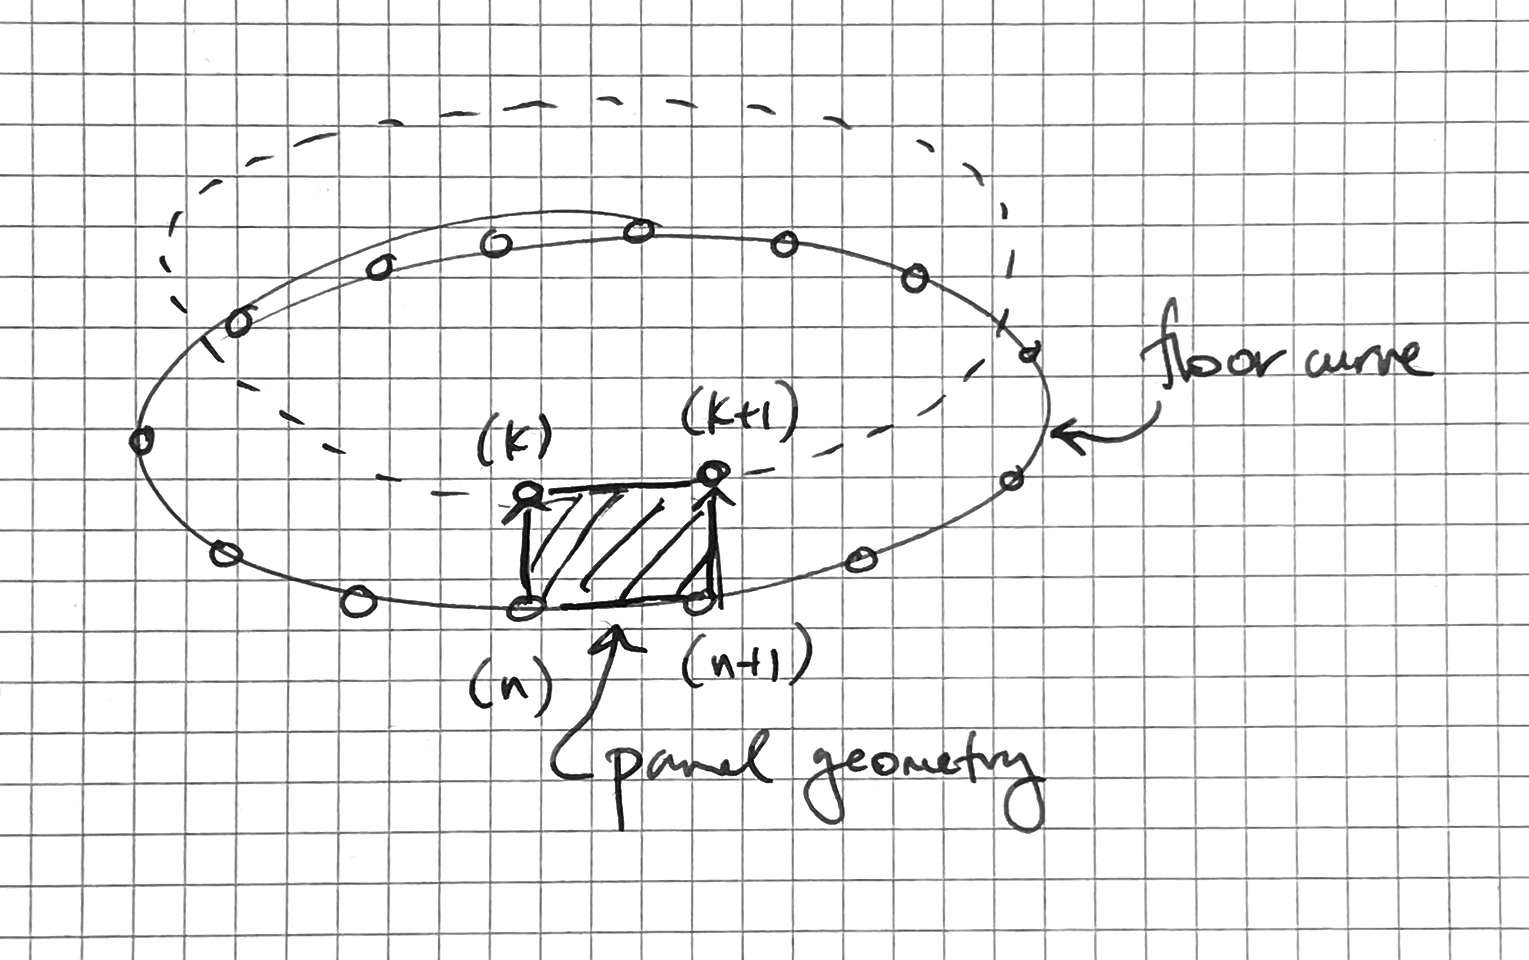 (k+1)
floor curve
(k)
(n+1)
(n)
panel geometry